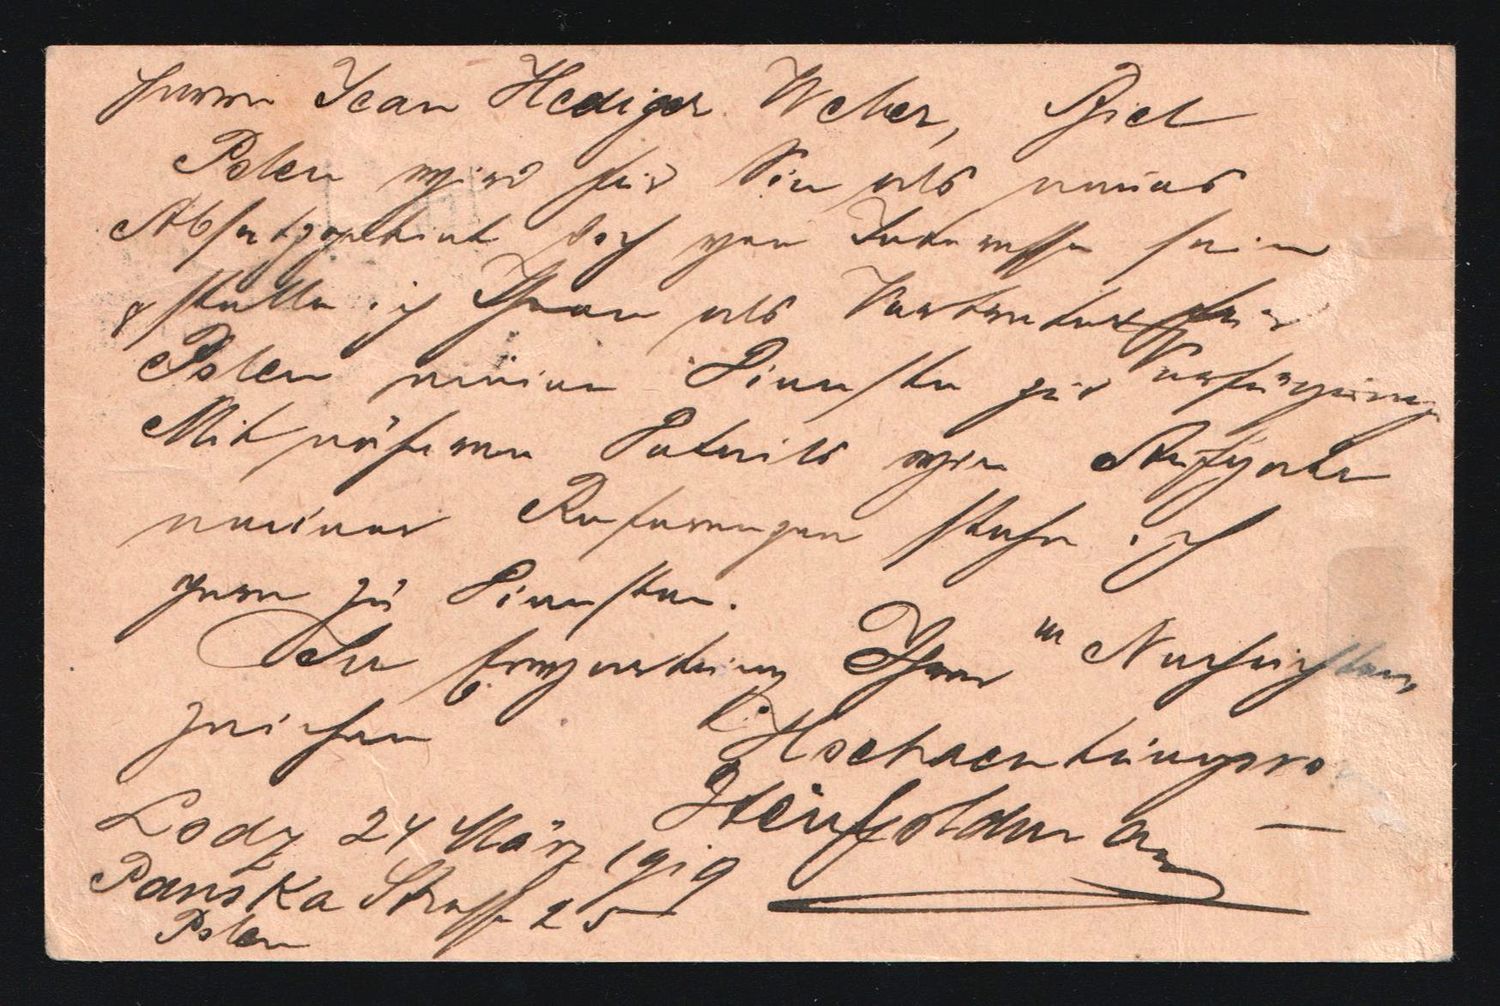 Herrn Jean Hediger Weber, Biel
Polen wird für Sie als neues
Absatzgebiet doch von Interesse sein
& stelle ich Ihnen als Vertreter für
Polen meine Dienste zur Verfügung
Mit näheren Details wie Aufgabe
meiner Referenzen stehe ich
gern zu Diensten.
In Erwartung Ihrer Nachrichten
zeichne
Hochachtungsvo
Lodz 24 März 1919
Panska Strasse 25
Polen